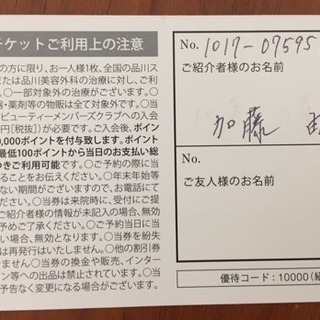 チケットご利用上の注意
の方に限り、お一人様1枚、全国の品川ス
または品川美容外科の治療に対し、ご利
。〇一部対象外の治療がございます。〇
器・薬剤等の物販は全て対象外です。〇
ビューティーメンバーズクラブへの入会
円［税抜］）が必要です。ご入会後、ポイン
0,000ポイントを付与致します。ポイント
最低100ポイントから当日のお支払い総
つきご利用可能です。〇ご予約の際に当
ることをお伝えください。〇年末年始等
ない期間がございますので、お電話にて
。〇当券は来院時に、受付にてご提
ご紹介者様の情報が未記入の場合、無効
予めご了承ください。〇ご予約当日に当
い場合、無効となります。〇当券を紛失
は再発行はいたしません。〇他の割引券
きません。〇当券の換金や販売、インター
ン等への出品は禁止されています。〇
予告なく変更になる場合がございます。
No. 1017-07595
ご紹介者様のお名前
加藤
No.
ご友人様のお名前
優待コード：10000（紹